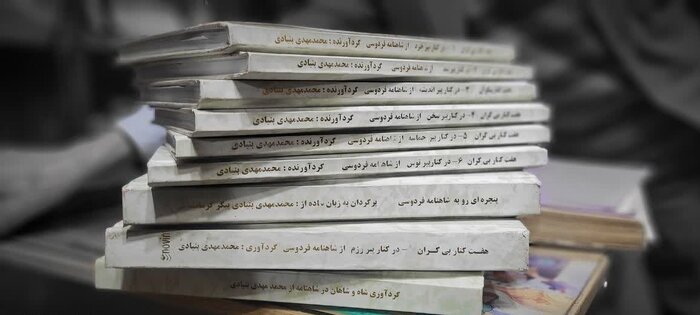 ۱- در کنار پیر خرد از شاهنامه فردوسی گردآورنده : محمدمهدی بنیادی
از شاهنامه فردوسی گردآورنده : محمدمهدی بنیادی
هفت کنار بی کران ۳- در کنار پیر اندیشه از شاهنامه فردوسی گردآورنده : محمدمهدی بنیادی
هفت کنار بی کران ۴- در کنار پیر سخن از شاهنامه فردوسی گردآورنده : محمدمهدی بنیادی
هفت کنار بی کران ۵- در کنار پیر حماسه از شاهنامه فردوسی گردآورنده : محمدمهدی بنیادی
هفت کنار بی کران ۶- در کنار پیر توس از شاهنامه فردوسی گردآورنده : محمدمهدی بنیادی
پنجره ای رو به شاهنامه فردوسی برگردان به زبان ساده از : محمدمهدی بنیادی پیکر
هفت کنار بی کران - در کنار پیر رزم از شاهنامه فردوسی گردآوری : محمدمهدی بنیادی
گردآوری شاه و شاهان در شاهنامه از محمد مهدی بنیادی